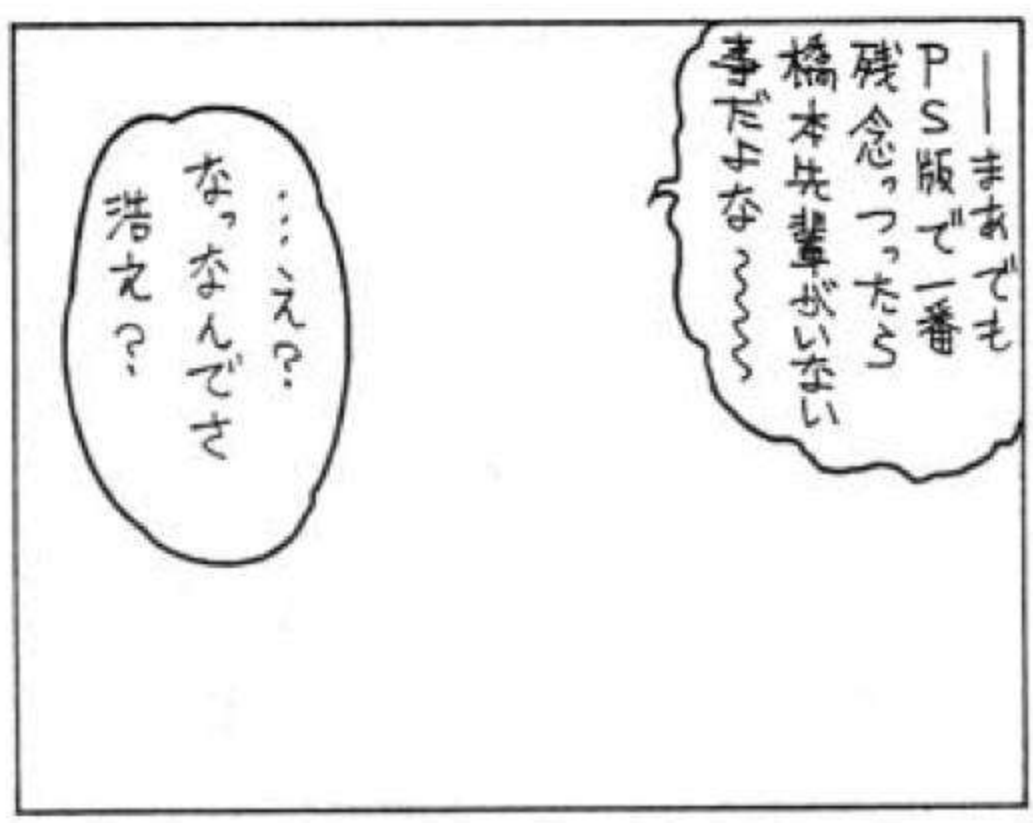 ――まあでも
PS版で一番
残念っつったら
橋本先輩がいない
事だよな〜〜〜〜
…え?
なっなんでさ
浩え?